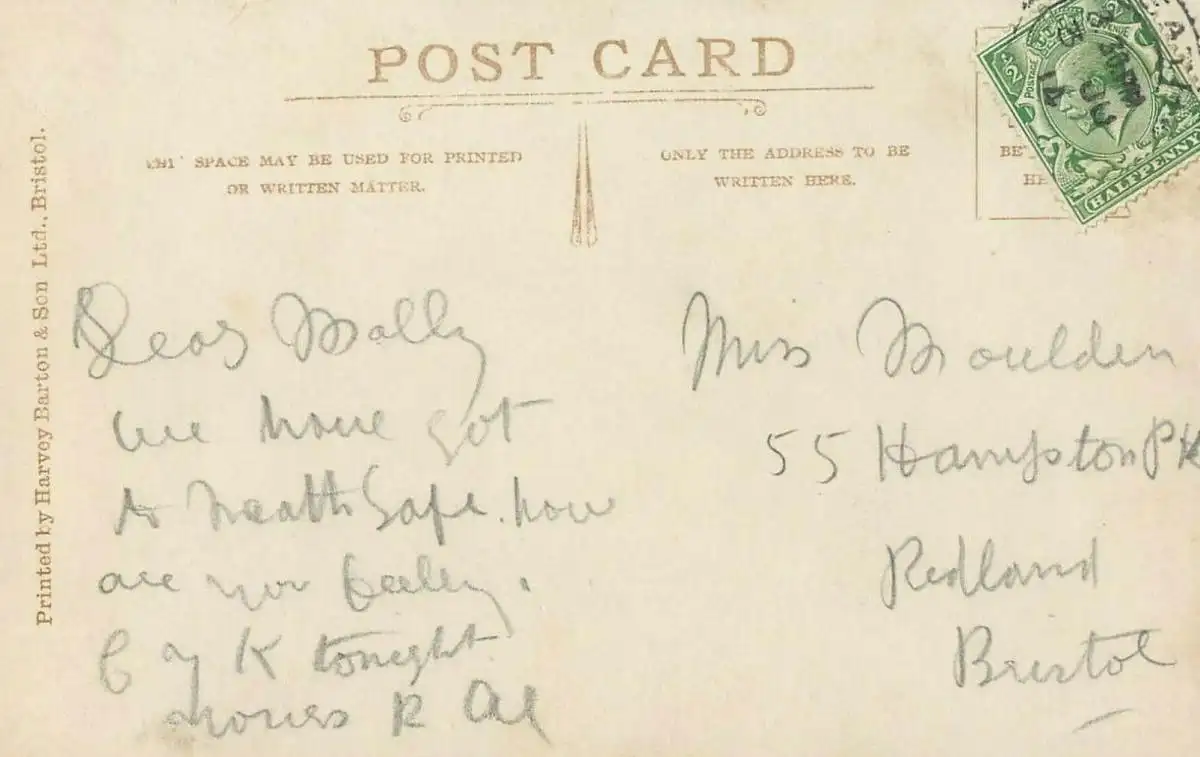 POST CARD
SPACE MAY BE USED FOR PRINTED
OR WRITTEN MATTER.
ONLY THE ADDRESS TO BE
WRITTEN HERE.
HALFPENNY
Printed by Harvey Barton & Son Ltd., Bristol.
Dear Molly
we have got
to Neath Safe. how
are you feeling.
K tonight
Yours R
Miss Moulden
55 Hampton Pk
Redland
Bristol